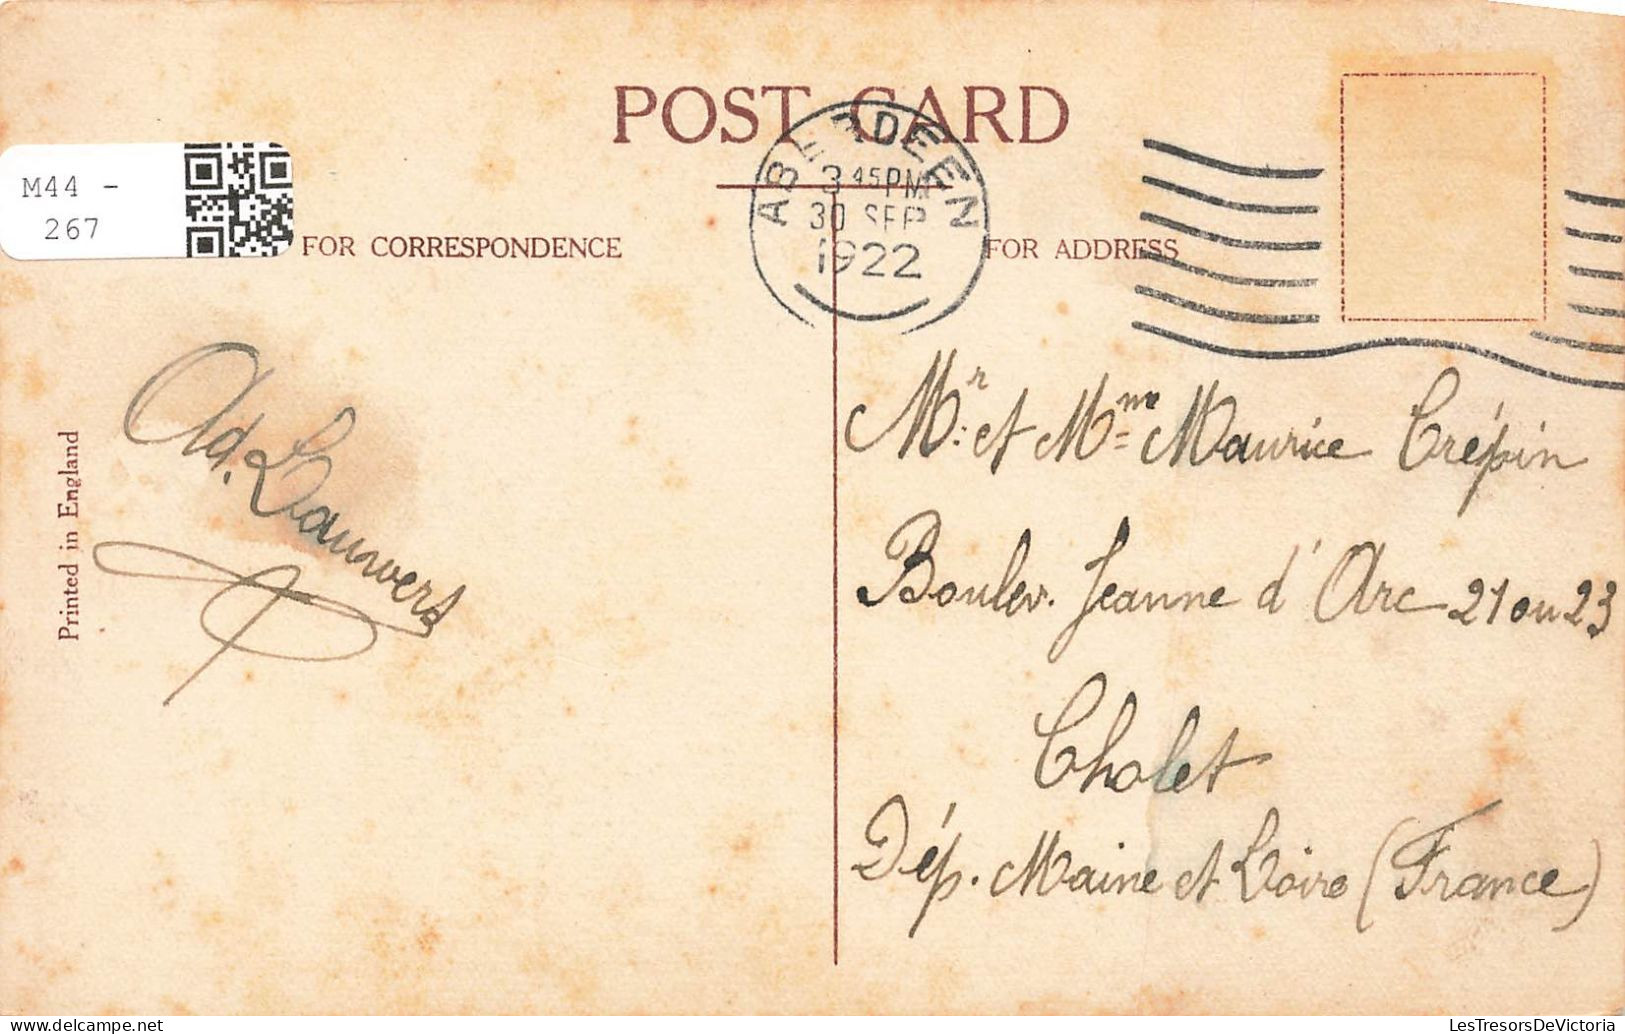 POST CARD
ABERDEEN
3 45PM
30 SEP
1922
M44 -
267
FOR CORRESPONDENCE
FOR ADDRESS
Printed in England
Ad. Lauwers
Mr. et Mme Maurice Crépin
Boulev. Jeanne d'Arc 21 ou 23
Cholet
Dép. Maine et Loire (France)
delcampe.net
LesTresorsDeVictoria